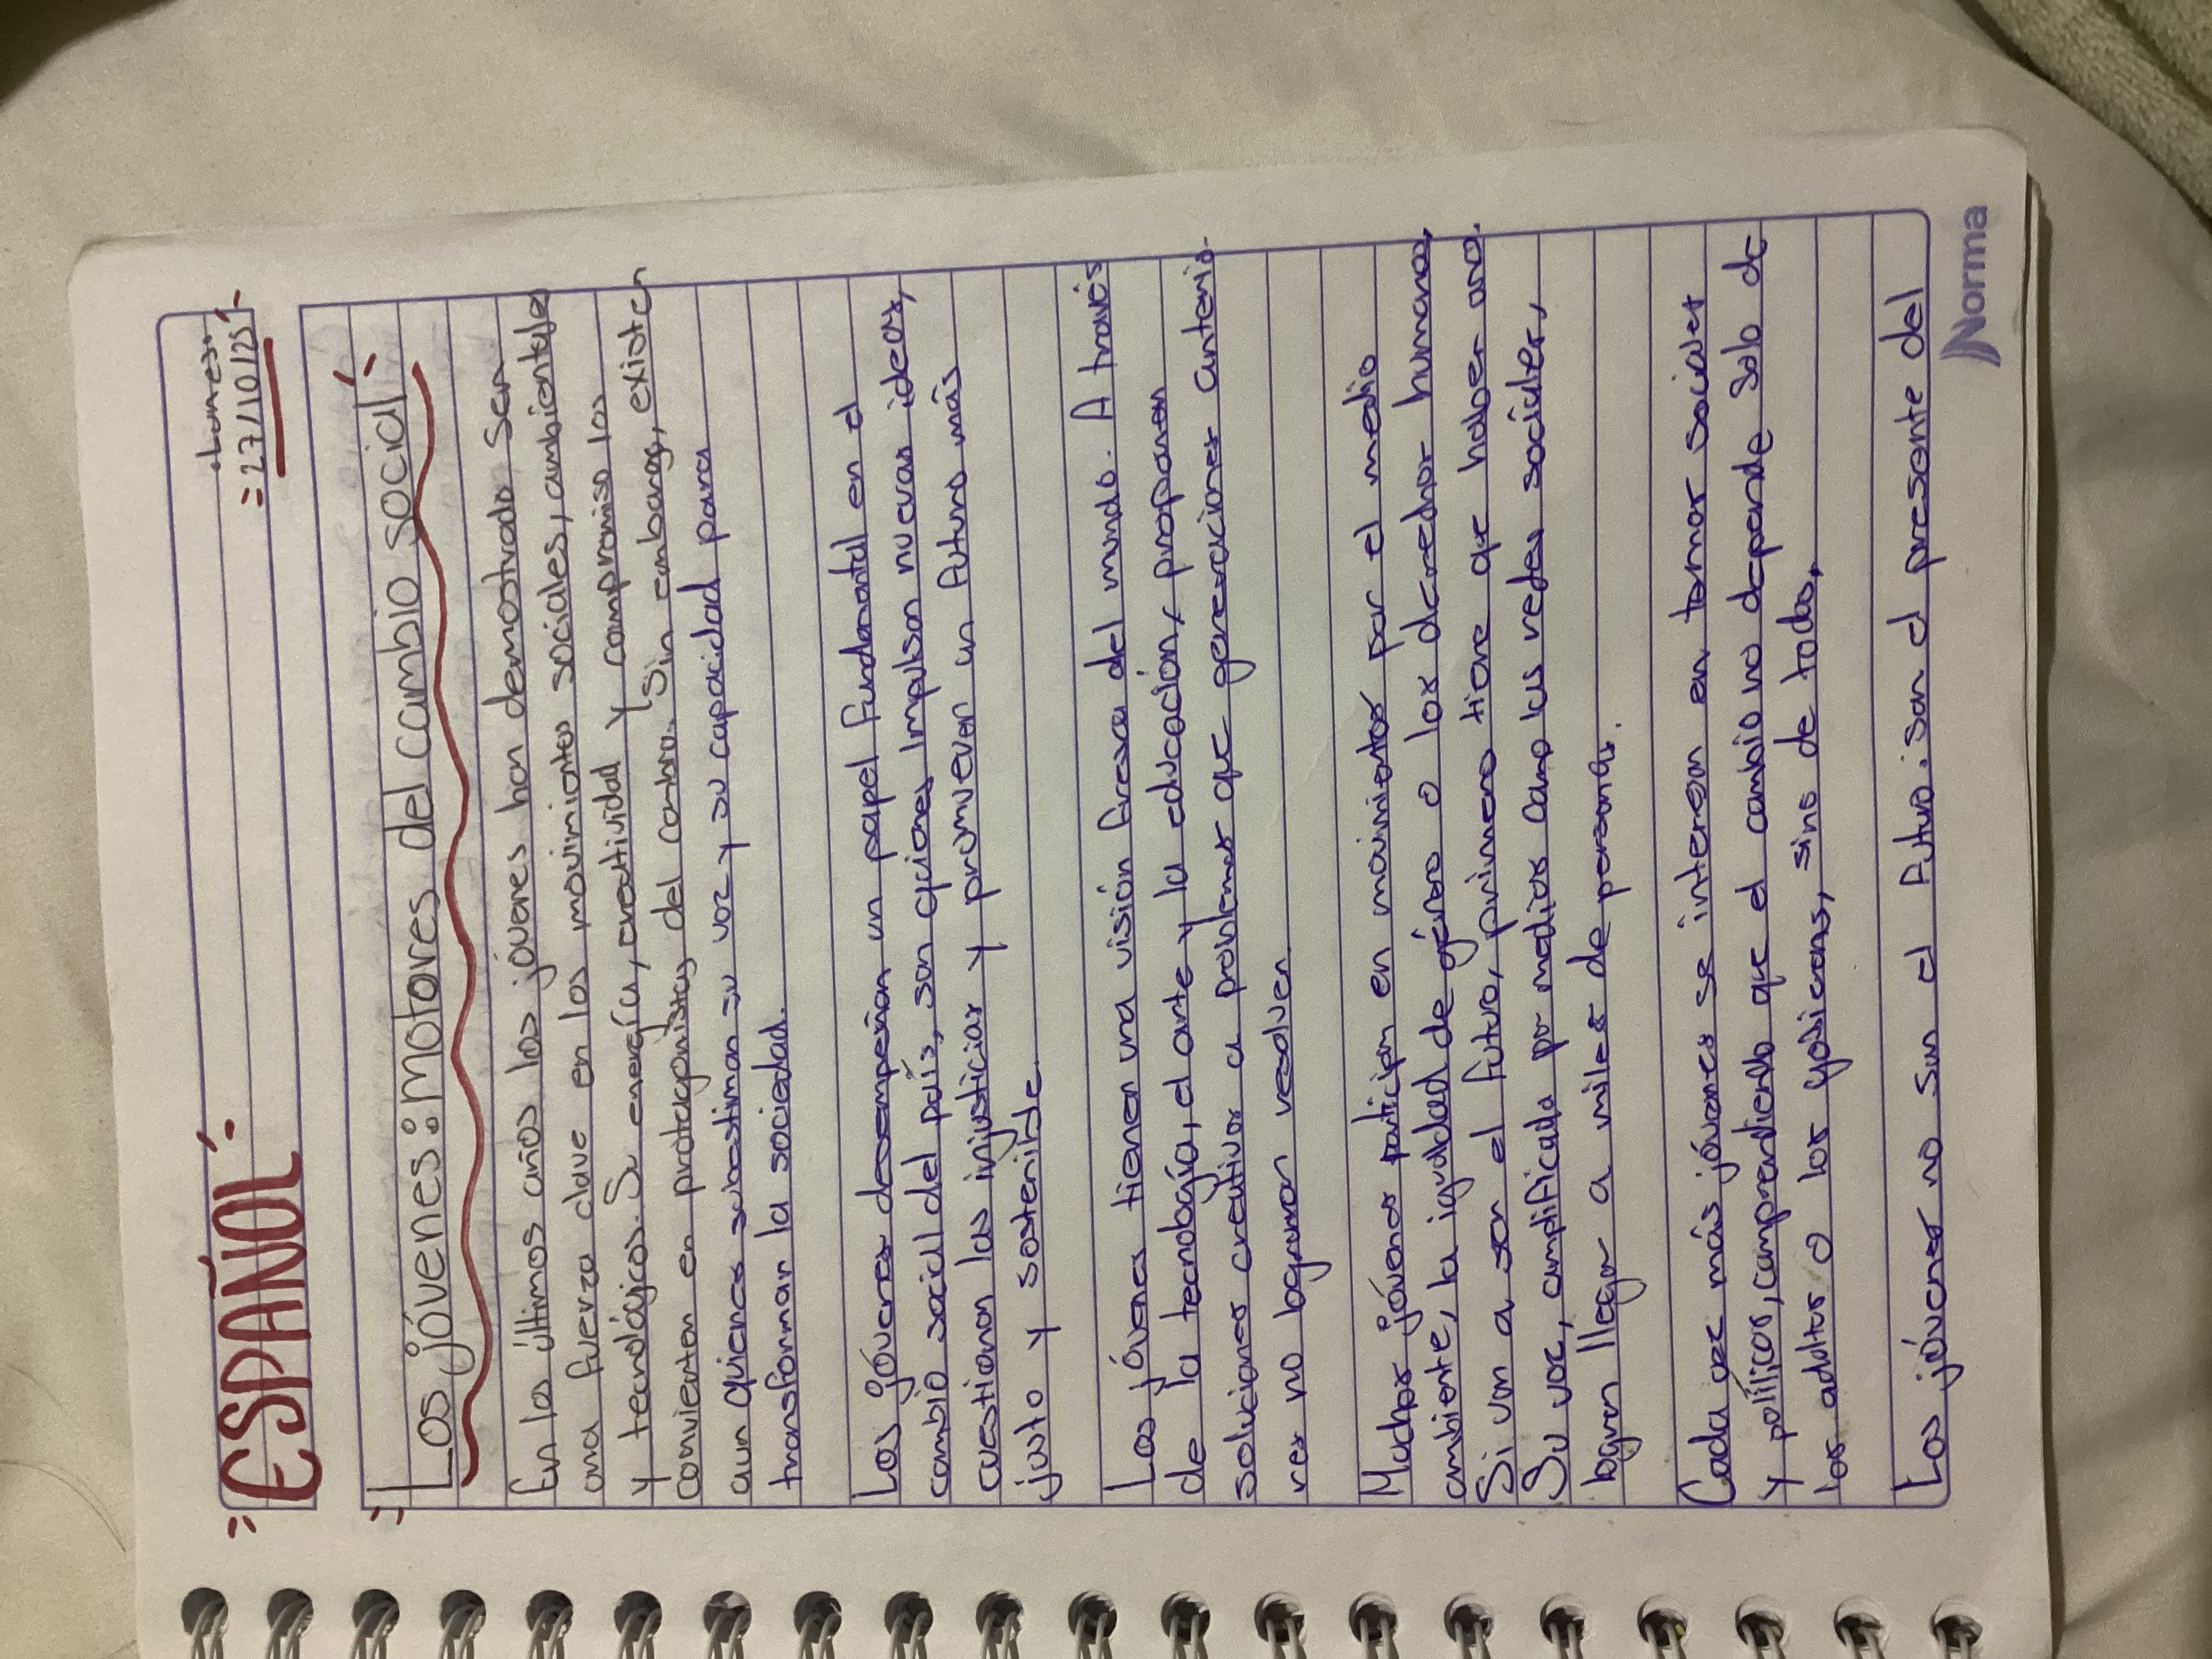 ESPAÑOL
lunes
27/10/25
Los jóvenes: motores del cambio social
En los últimos años los jóvenes han demostrado ser
una fuerza clave en los movimientos sociales, ambientales
y tecnológicos. Su energía, creatividad y compromiso los
convierten en protagonistas del cambio. Sin embargo, existen
aun quienes subestiman su voz y su capacidad para
transformar la sociedad.
Los jóvenes desempeñan un papel fundamental en el
cambio social del país, son quienes impulsan nuevas ideas,
cuestionan las injusticias y promueven un futuro más
justo y sostenible.
Los jóvenes tienen una visión fresca del mundo. A través
de la tecnología, el arte y la educación, proponen
soluciones creativas a problemas que generaciones anterio-
res no lograron resolver.
Muchos jóvenes participan en movimientos por el medio
ambiente, la igualdad de género o los derechos humanos,
Si van a ser el futuro, primero tiene que haber uno.
Su voz, amplificada por medios como las redes sociales,
logran llegar a miles de personas.
Cada vez más jóvenes se interesan en temas sociales
y políticos, comprendiendo que el cambio no depende solo de
los adultos o los gobiernos, sino de todos,
Los jóvenes no son el futuro: son el presente del
Norma